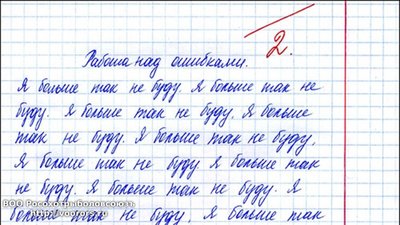 2.
Работа над ошибками.
Я больше так не буду. Я больше так не
буду. Я больше так не буду. Я больше
так не буду. Я больше так не буду.
Я больше так не буду Я больше так
не буду. Я больше так не буду. Я
больше так не буду. Я больше так
ВОО Росохотрыболовсоюзъ